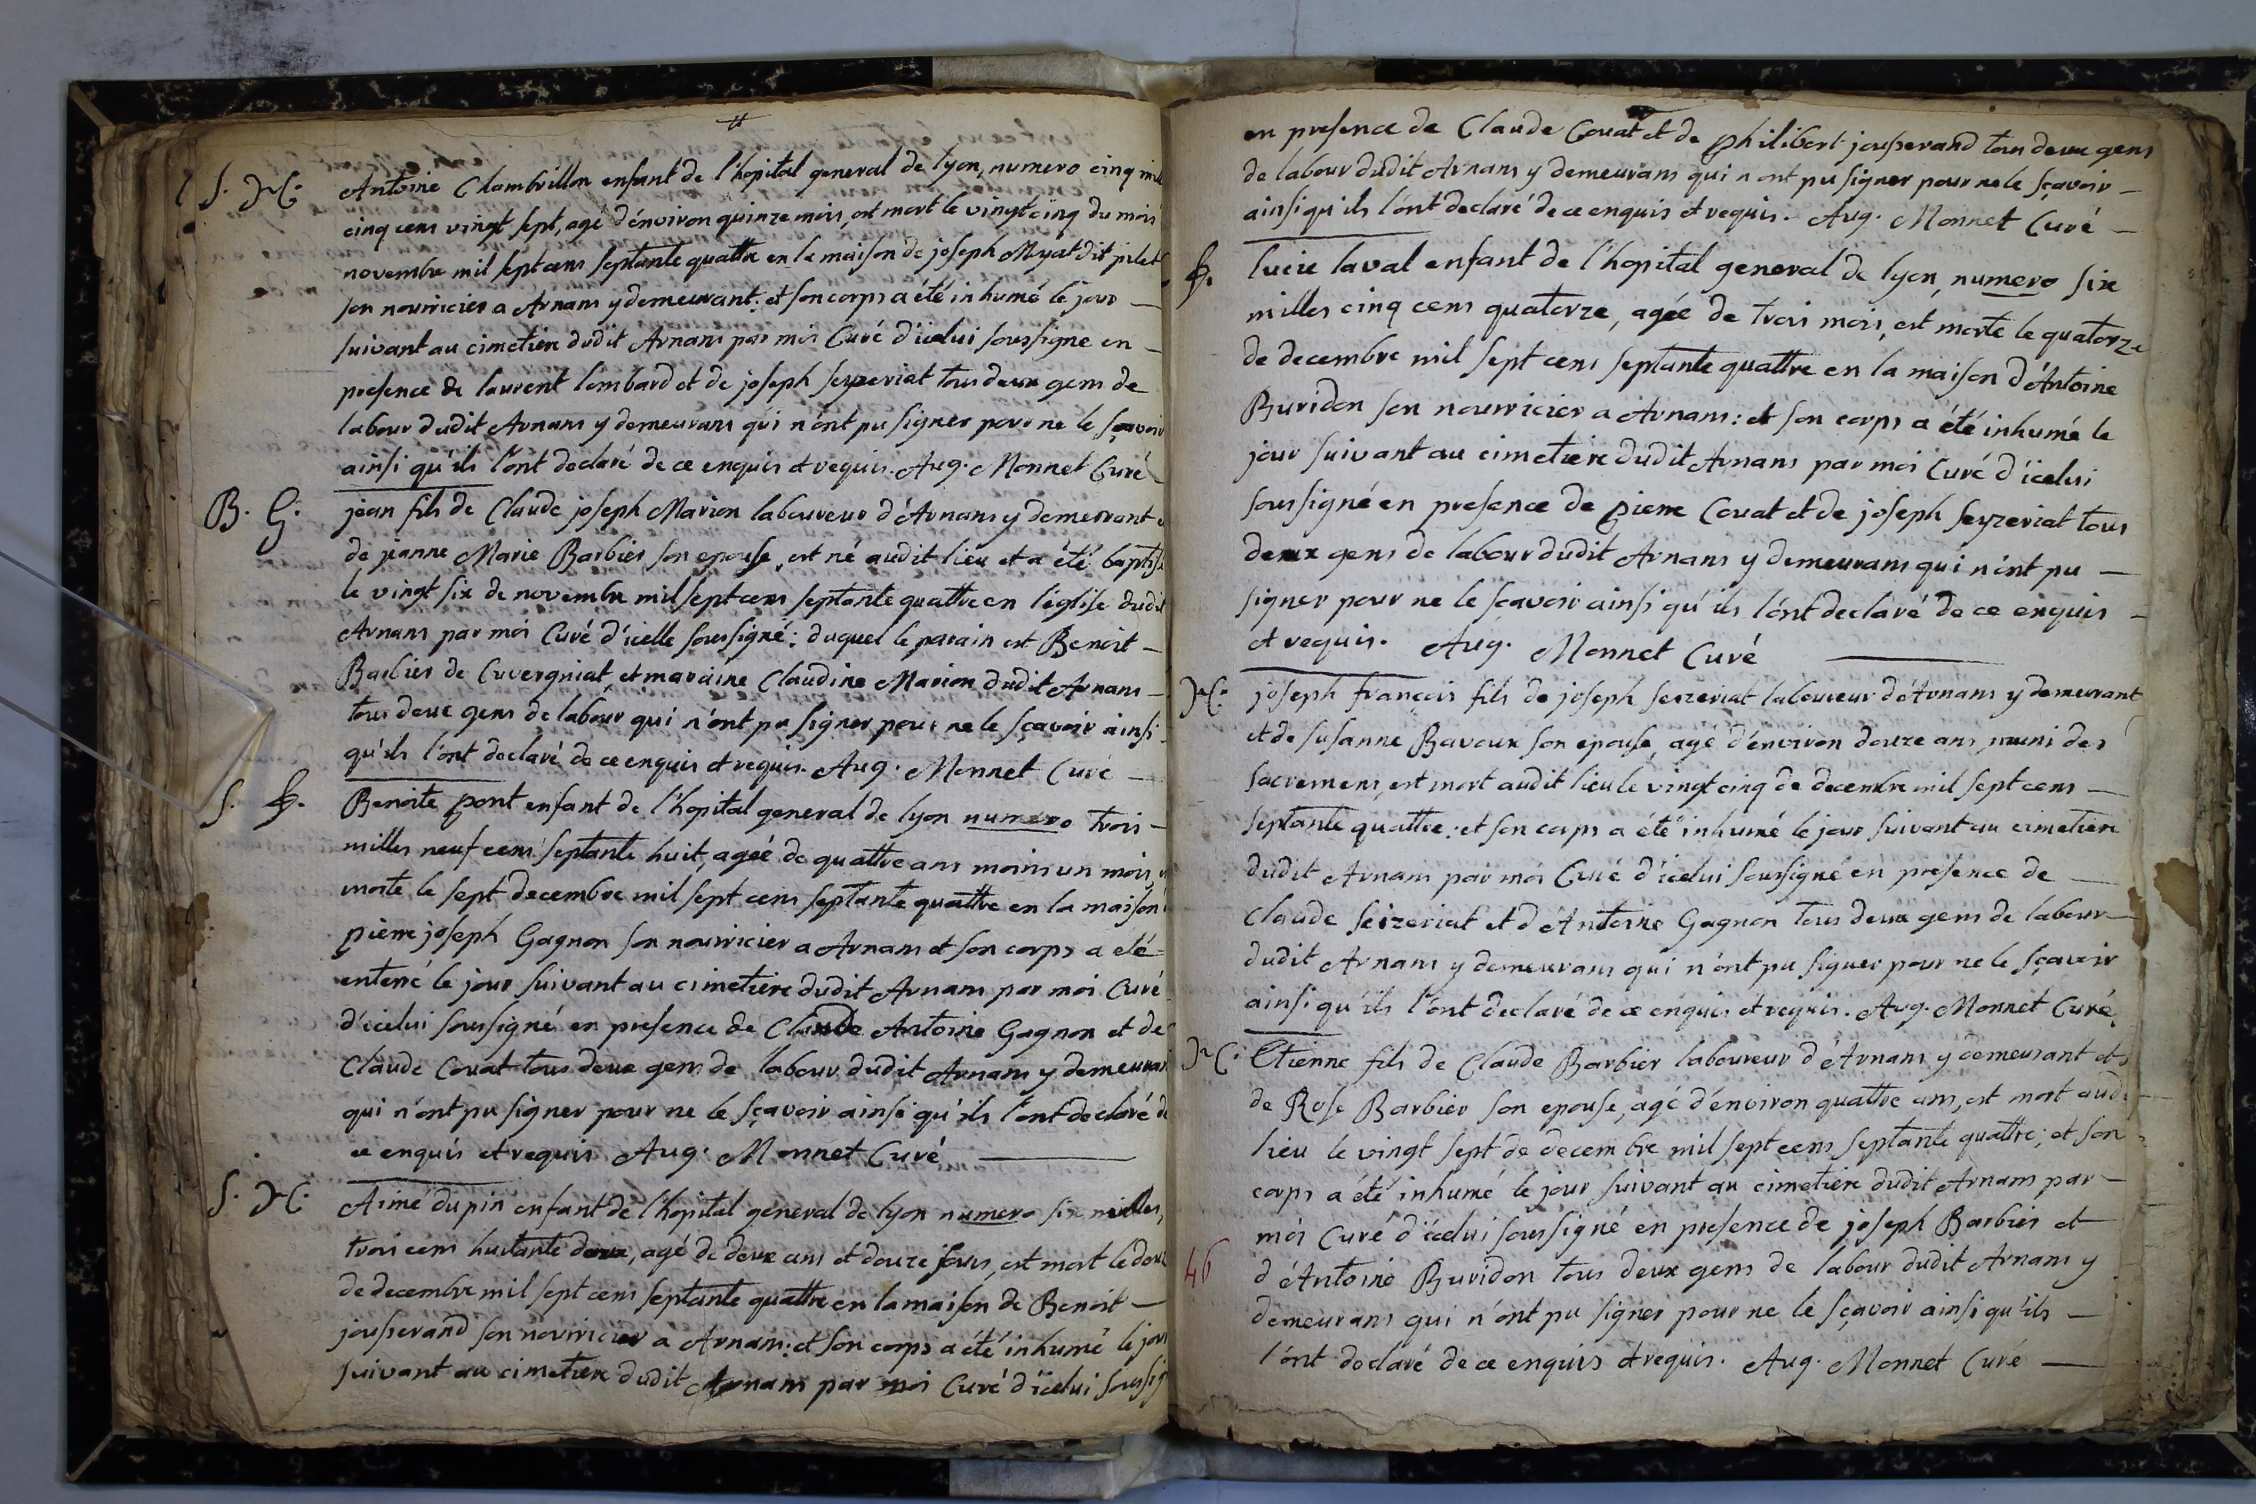 S.
Antoine Clambrillon enfant de l'hopital general de lyon, numero cinq mil
cinq cens vingt sept, agé d'environ quinze mois, est mort le vingt cinq du mois
novembre mil sept cens septante quattre en la maison de joseph Myat dit pilet
son nourricier a Arnans y demeurant: et son corps a été inhumé le jour —
suivant au cimetiere dudit Arnans par moi Curé d'icelui soussigne en —
presence de laurent lombard et de joseph seyzeriat tous deux gens de
labour dudit Arnans y demeurans qui n'ont pu signer pour ne le sçavoir
ainsi qu'ils l'ont declaré de ce enquis et requis. Aug. Monnet Curé —
B. G.
jean fils de Claude joseph Marion laboureur d'Arnans y demeurant
de jeanne Marie Barbier son epouse, est né audit lieu et a été baptisé
le vingt six de novembre mil sept cens septante quattre en l'église dudit
Arnans par moi Curé d'icelle soussigné: duquel le parain est Benoit —
Barbier de Cuvergniat, et maraine Claudine Marion dudit Arnans —
tous deux gens de labour qui n'ont pu signer pour ne le sçavoir ainsi
qu'ils l'ont declaré de ce enquis et requis. Aug. Monnet Curé —
S.
Benoite pont enfant de l'hopital general de lyon numero trois —
milles neuf cens septante huit, agée de quattre ans moins un mois,
morte le sept decembre mil sept cens septante quattre en la maison
pierre joseph Gagnon son nourricier a Arnans et son corps a eté
enterré le jour suivant au cimetiere dudit Arnans par moi Curé
d'icelui soussigné en presence de Claude Antoine Gagnon et de
Claude Couat tous deux gens de labour dudit Arnans y demeurans
qui n'ont pu signer pour ne le sçavoir ainsi qu'ils l'ont declaré de
ce enquis et requis Aug. Monnet Curé —
S.
Aimé dupin enfant de l'hopital general de lyon numero six milles,
trois cens huitante deux, agé de deux ans et douze jours, est mort le douze
de decembre mil sept cens septante quattre en la maison de Benoit —
jouserand son nourricier a Arnans: et son corps a été inhumé le jour
suivant au cimetiere dudit Arnans par moi Curé d'icelui soussig
en presence de Claude Couat et de philibert jouserand tous deux gens
de labour dudit Arnans y demeurans qui n ont pu signer pour ne le sçavoir —
ainsi qu'ils l'ont declaré de ce enquis et requis. Aug. Monnet Curé —
lucie laval enfant de l'hopital general de lyon, numero six
milles cinq cens quatorze, agée de trois mois, est morte le quatorze
de decembre mil sept cens septante quattre en la maison d'Antoine
Buridon son nourricier a Arnans: et son corps a été inhumé le
jour suivant au cimetiere dudit Arnans par moi Curé d'icelui
soussigné en presence de pierre Couat et de joseph seyzeriat tous
deux gens de labour dudit Arnans y demeurans qui n'ont pu —
signer pour ne le sçavoir ainsi qu'ils l'ont declaré de ce enquis —
et requis. Aug. Monnet Curé —
joseph françois fils de joseph seizeriat laboureur d'Arnans y demeurant
et de susanne Bavoux son epouse, agé d'environ douze ans, muni des
sacremens, est mort audit lieu le vingt cinq de decembre mil sept cens —
septante quattre: et son corps a été inhumé le jour suivant au cimetiere
dudit Arnans par moi Curé d'icelui soussigné en presence de —
Claude seizeriat et d'Antoine Gagnon tous deux gens de labour
dudit Arnans y demeurans qui n'ont pu signer pour ne le sçavoir
ainsi qu'ils l'ont declaré de ce enquis et requis. Aug. Monnet Curé
Etienne fils de Claude Barbier laboureur d'Arnans y demeurant et
de Rose Barbier son epouse, agé d'environ quattre ans, est mort aud
lieu le vingt sept de decembre mil sept cens septante quattre; et son
corps a été inhumé le jour suivant au cimetiere dudit Arnans par —
moi Curé d'icelui soussigné en presence de joseph Barbier et
46
d'Antoine Buridon tous deux gens de labour dudit Arnans y
demeurans qui n'ont pu signer pour ne le sçavoir ainsi qu'ils —
l'ont declaré de ce enquis et requis. Aug. Monnet Curé —